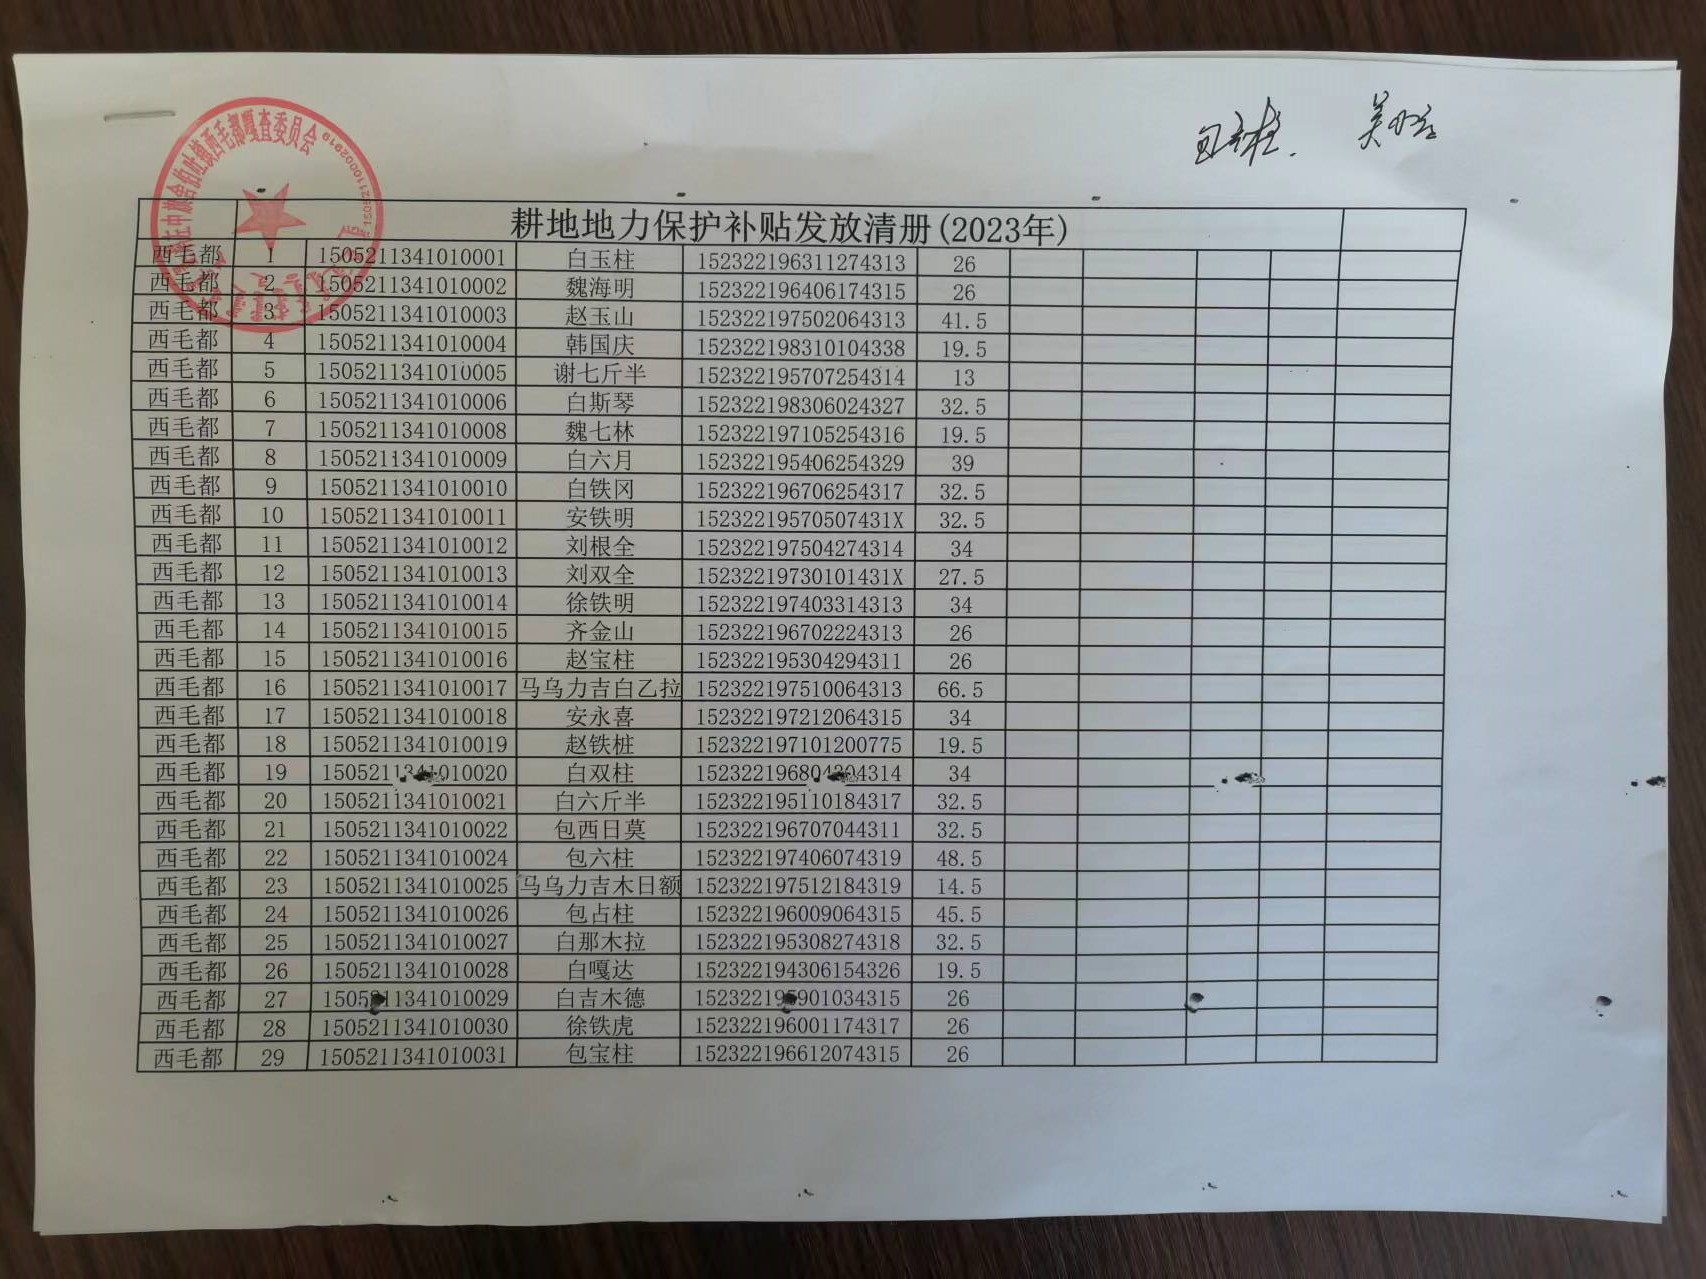 舍伯吐镇西毛都嘎查委员会
耕地地力保护补贴发放清册(2023年)
西毛都 1 1505211341010001 白玉柱 152322196311274313 26
西毛都 2 1505211341010002 魏海明 152322196406174315 26
西毛都 3 1505211341010003 赵玉山 152322197502064313 41.5
西毛都 4 1505211341010004 韩国庆 152322198310104338 19.5
西毛都 5 1505211341010005 谢七斤半 152322195707254314 13
西毛都 6 1505211341010006 白斯琴 152322198306024327 32.5
西毛都 7 1505211341010008 魏七林 152322197105254316 19.5
西毛都 8 1505211341010009 白六月 152322195406254329 39
西毛都 9 1505211341010010 白铁冈 152322196706254317 32.5
西毛都 10 1505211341010011 安铁明 15232219570507431X 32.5
西毛都 11 1505211341010012 刘根全 152322197504274314 34
西毛都 12 1505211341010013 刘双全 15232219730101431X 27.5
西毛都 13 1505211341010014 徐铁明 152322197403314313 34
西毛都 14 1505211341010015 齐金山 152322196702224313 26
西毛都 15 1505211341010016 赵宝柱 152322195304294311 26
西毛都 16 1505211341010017 马乌力吉白乙拉 152322197510064313 66.5
西毛都 17 1505211341010018 安永喜 152322197212064315 34
西毛都 18 1505211341010019 赵铁桩 152322197101200775 19.5
西毛都 19 1505211341010020 白双柱 34
西毛都 20 1505211341010021 白六斤半 152322195110184317 32.5
西毛都 21 1505211341010022 包西日莫 152322196707044311 32.5
西毛都 22 1505211341010024 包六柱 152322197406074319 48.5
西毛都 23 1505211341010025 马乌力吉木日额 152322197512184319 14.5
西毛都 24 1505211341010026 包占柱 152322196009064315 45.5
西毛都 25 1505211341010027 白那木拉 152322195308274318 32.5
西毛都 26 1505211341010028 白嘎达 152322194306154326 19.5
西毛都 27 1505211341010029 白吉木德 26
西毛都 28 1505211341010030 徐铁虎 152322196001174317 26
西毛都 29 1505211341010031 包宝柱 152322196612074315 26